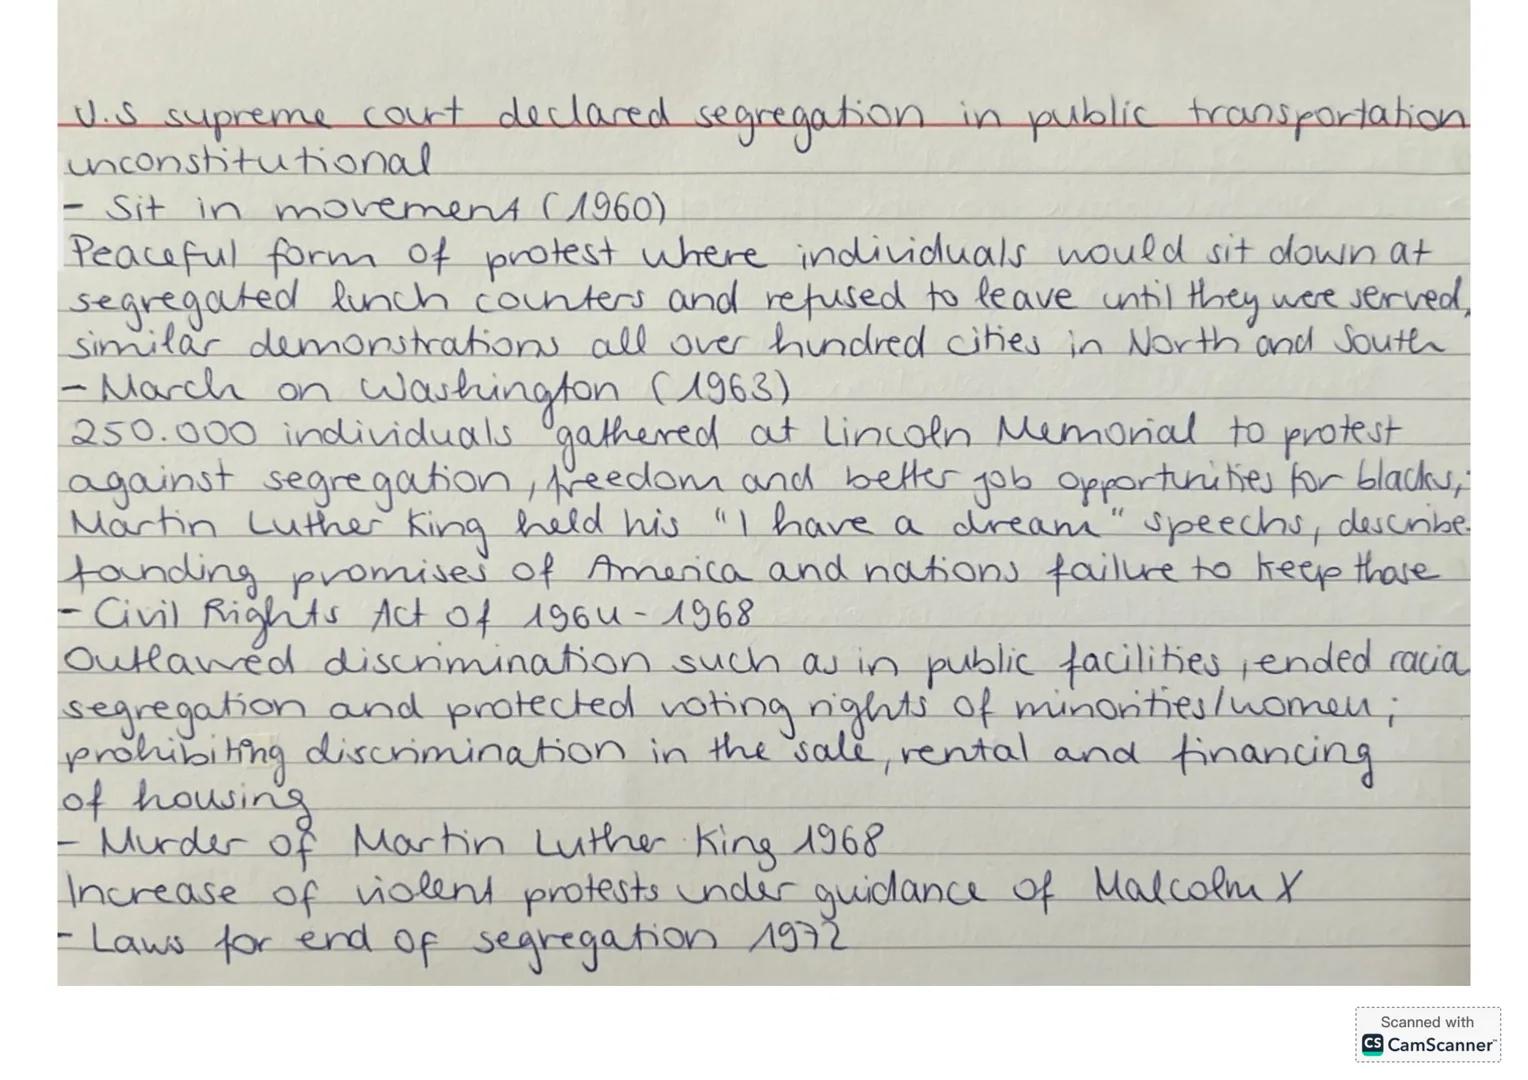 U.S supreme court declared segregation in public transportation
unconstitutional
- Sit in movement (1960)
Peaceful form of protest where individuals would sit down at
segregated lunch counters and refused to leave until they were served,
similar demonstrations all over hundred cities in North and South
- March on Washington (1963)
250.000 individuals gathered at Lincoln Memorial to protest
against segregation, freedom and better job opportunities for blacks;
Martin Luther King held his "I have a dream" speechs, describe
founding promises of America and nations failure to keep those
- Civil Rights Act of 1964-1968
Outlawed discrimination such as in public facilities, ended racia
segregation and protected voting rights of minorities/women;
prohibiting discrimination in the sale, rental and financing
of housing
- Murder of Martin Luther King 1968
Increase of violent protests under guidance of Malcolm X
- Laws for end of segregation 1972
Scanned with
CS CamScanner